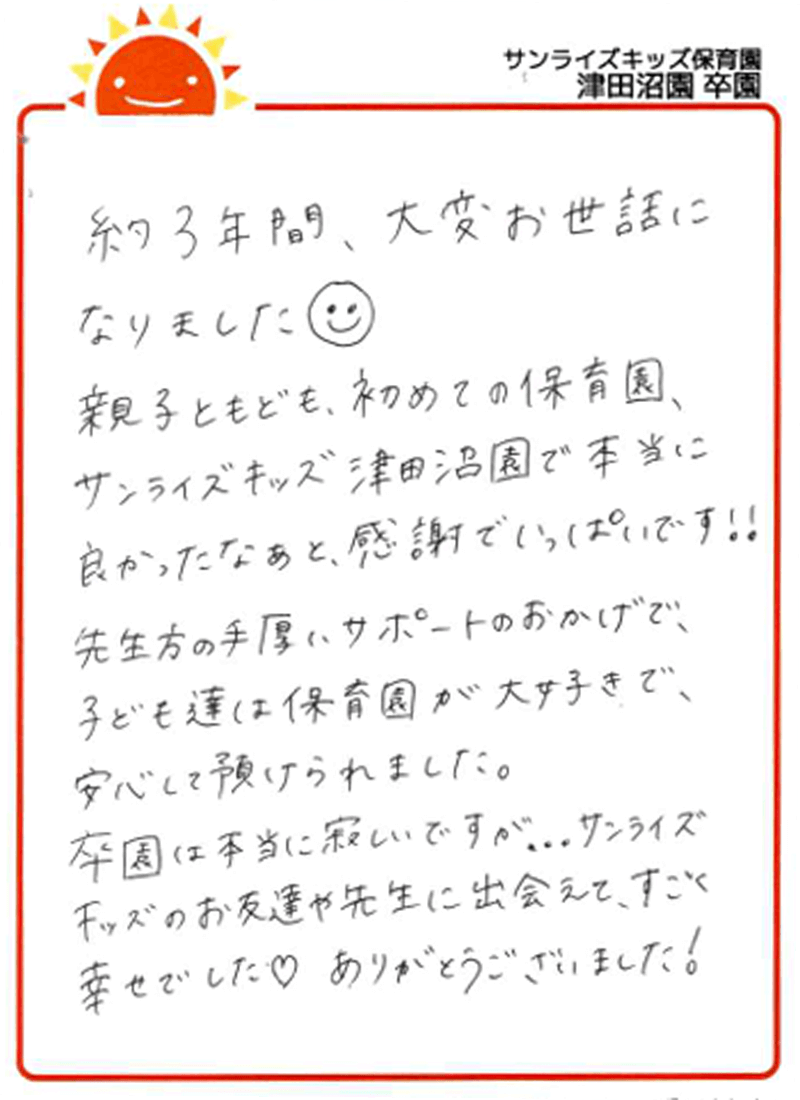 サンライズキッズ保育園
津田沼園 卒園
約3年間、大変お世話に
なりました☺
親子ともども、初めての保育園、
サンライズキッズ津田沼園で本当に
良かったなぁと、感謝でいっぱいです!!
先生方の手厚いサポートのおかげで、
子ども達は保育園が大好きで、
安心して預けられました。
卒園は本当に寂しいですが...サンライズ
キッズのお友達や先生に出会えて、すごく
幸せでした♡ ありがとうございました!